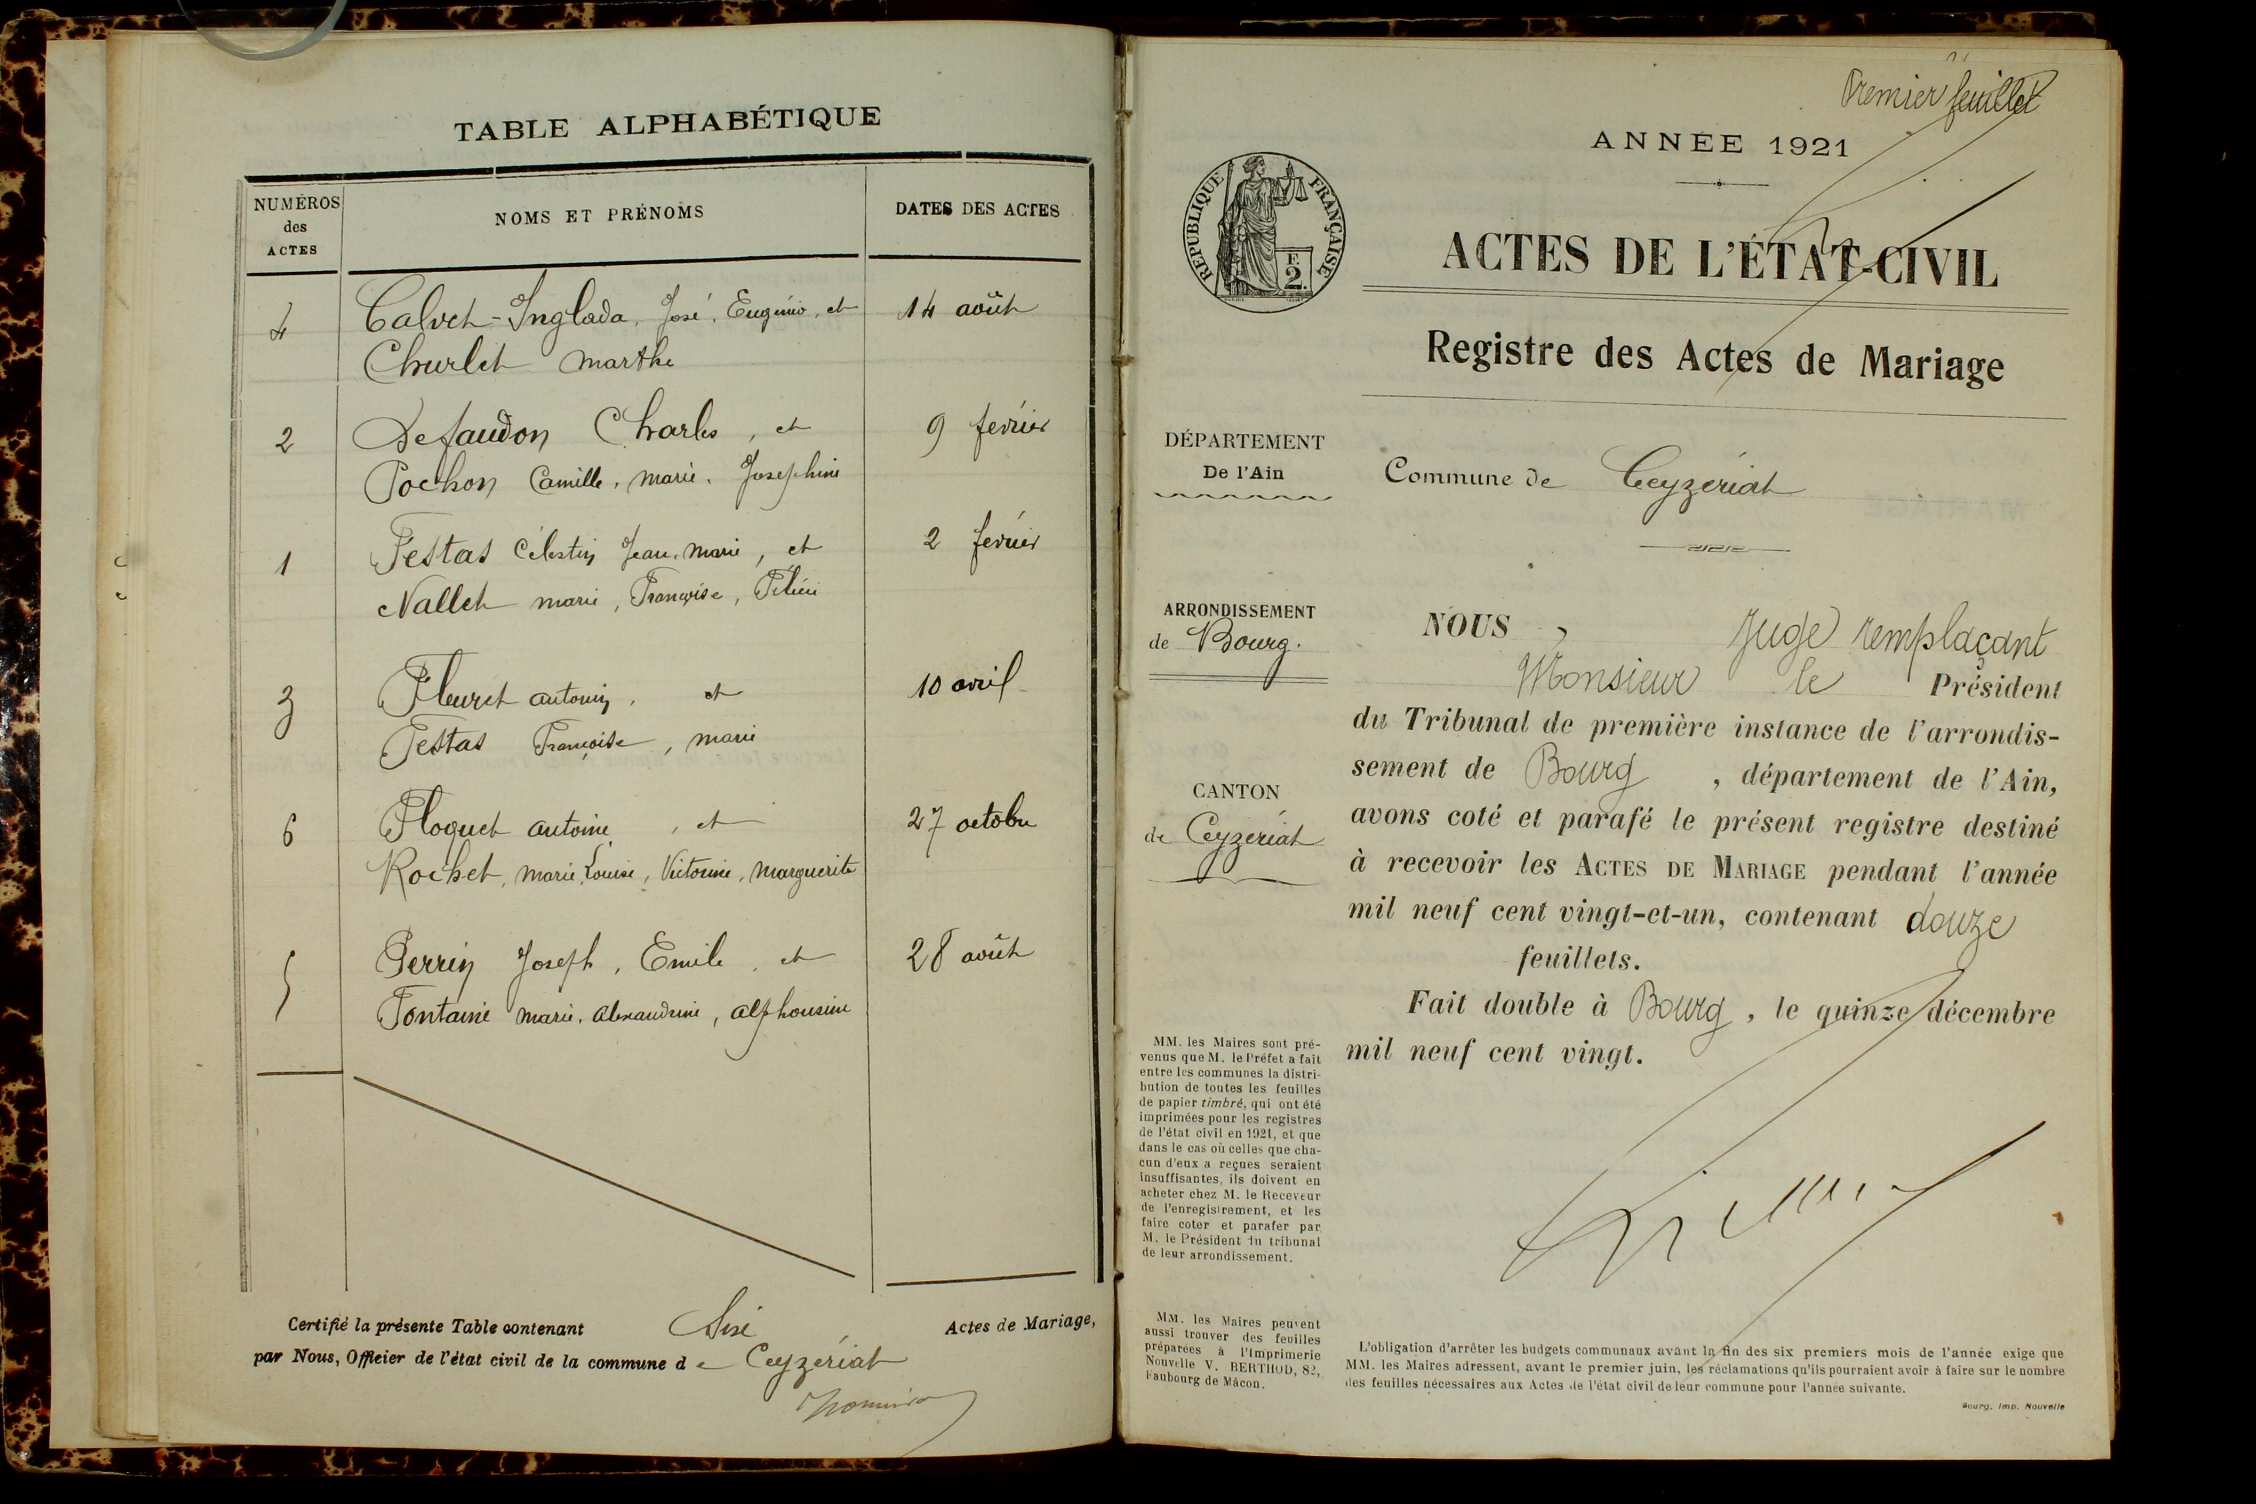 TABLE ALPHABÉTIQUE
NUMÉROS
des
ACTES
NOMS ET PRÉNOMS
DATES DES ACTES
4 Calvet-Inglada, José, Eugénio, et 14 août
Churlet Marthe
2 Defaudon Charles, et 9 février
Pochon Camille, Marie, Josephine
1 Festas Célestin Jean, Marie, et 2 février
Nallet Marie, Françoise, Félicie
3 Fleuret Antonin, et 10 avril
Festas Françoise, Marie
6 Floquet Antoine, et 27 octobre
Rochet, Marie, Louise, Victorine, Marguerite
5 Perrin Joseph, Emile, et 28 août
Fontaine Marie, Alexandrine, Alphonsine
Certifié la présente Table contenant Six Actes de Mariage,
par Nous, Officier de l'état civil de la commune de Ceyzériat
Premier feuillet
ANNÉE 1921
RÉPUBLIQUE FRANÇAISE
F.
2.
ACTES DE L'ÉTAT-CIVIL
Registre des Actes de Mariage
DÉPARTEMENT
De l'Ain
Commune de Ceyzériat
ARRONDISSEMENT
de Bourg.
CANTON
de Ceyzériat
NOUS, Juge remplaçant
Monsieur le Président
du Tribunal de première instance de l'arrondis-
sement de Bourg, département de l'Ain,
avons coté et parafé le présent registre destiné
à recevoir les ACTES DE MARIAGE pendant l'année
mil neuf cent vingt-et-un, contenant douze
feuillets.
Fait double à Bourg, le quinze décembre
mil neuf cent vingt.
MM. les Maires sont pré-
venus que M. le Préfet a fait
entre les communes la distri-
bution de toutes les feuilles
de papier timbré, qui ont été
imprimées pour les registres
de l'état civil en 1921, et que
dans le cas où celles que cha-
cun d'eux a reçues seraient
insuffisantes, ils doivent en
acheter chez M. le Receveur
de l'enregistrement, et les
faire coter et parafer par
M. le Président du tribunal
de leur arrondissement.
MM. les Maires peuvent
aussi trouver des feuilles
préparées à l'Imprimerie
Nouvelle V. BERTHOD, 82,
Faubourg de Mâcon.
L'obligation d'arrêter les budgets communaux avant la fin des six premiers mois de l'année exige que
MM. les Maires adressent, avant le premier juin, les réclamations qu'ils pourraient avoir à faire sur le nombre
des feuilles nécessaires aux Actes de l'état civil de leur commune pour l'année suivante.
Bourg, Imp. Nouvelle